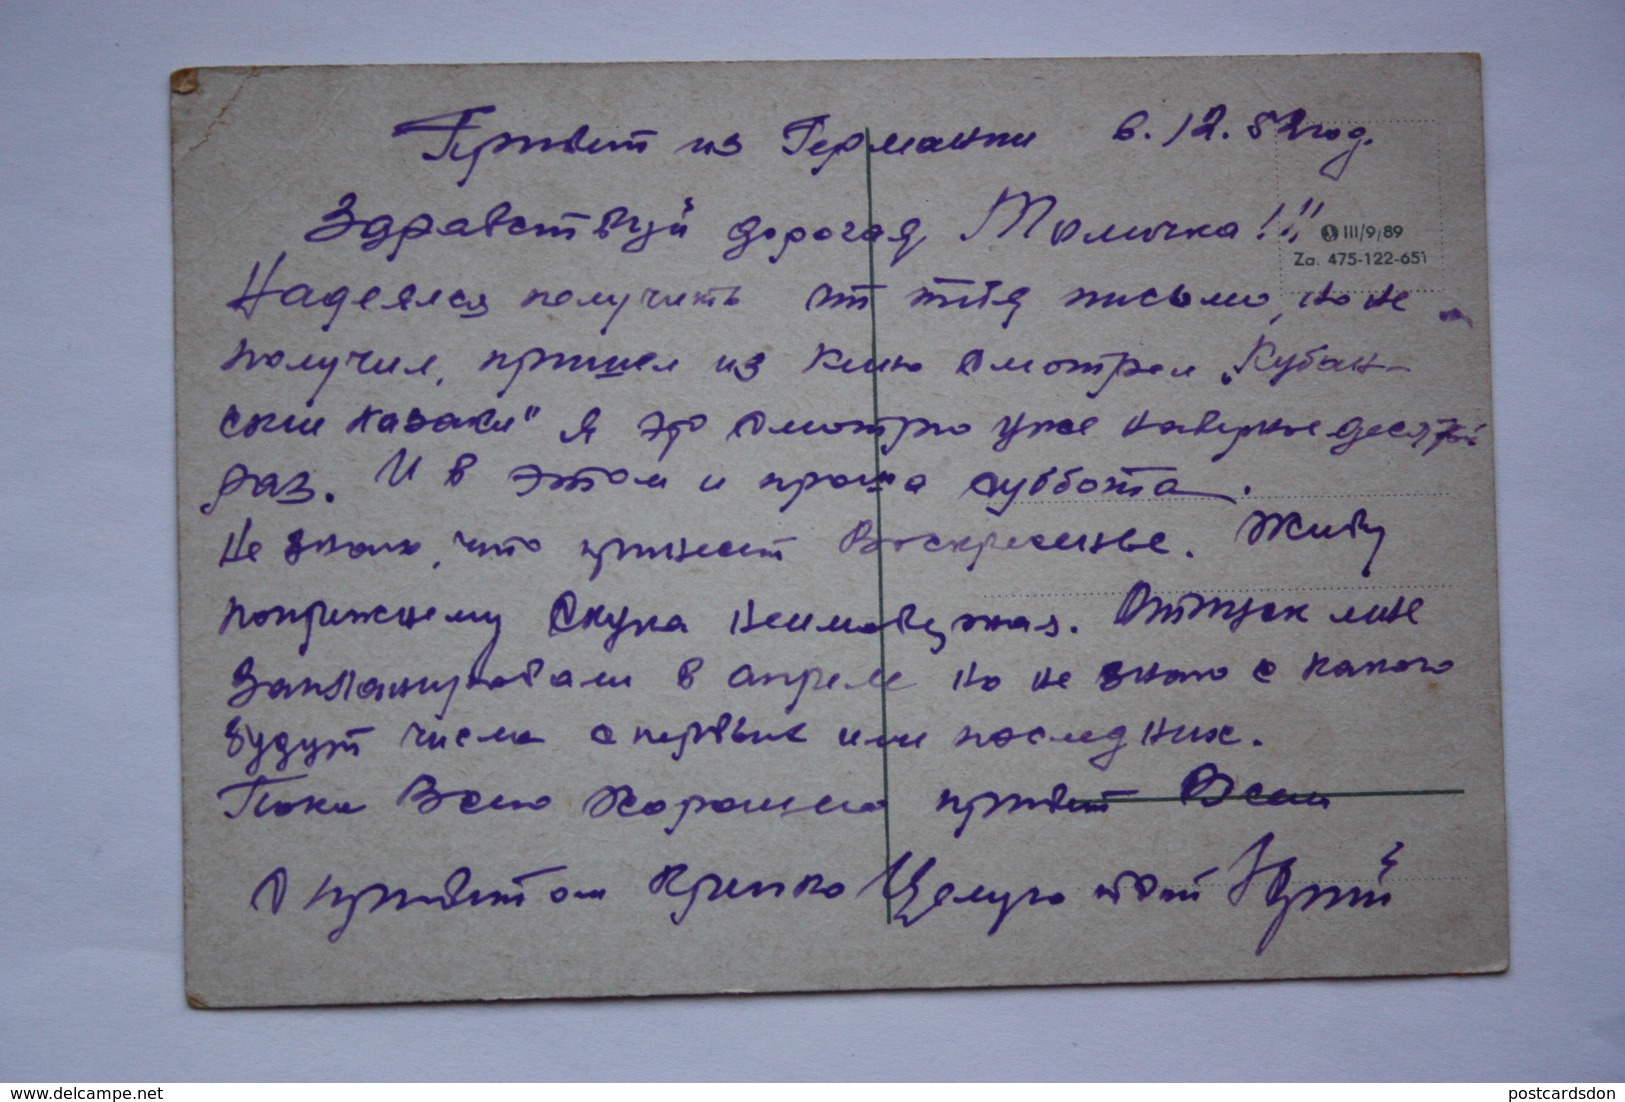 Привет из Германии 6.12.52 год.
Здравствуй дорогая Томочка!!!
III/9/89
Za. 475-122-651
Надеялся получить от тебя письмо, но не
получил, пришел из кино смотрел „Кубан-
ские казаки" я это смотрю уже наверное десятый
раз. И в этом и прошла суббота.
Не знаю, что принесет Воскресенье. Живу
попрежнему Скука неимоверная. Отпуск мне
запланировали в апреле но не знаю с какого
будут числа с первых или последних.
Пока Всего Хорошего привет Всем
С приветом Крепко Целую твой Юрий
www.delcampe.net
postcardsdon